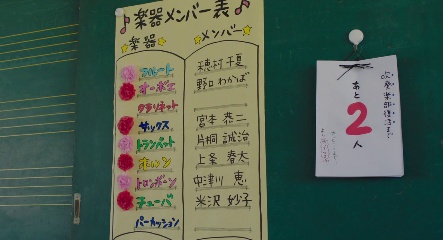 ♪楽器メンバー表♪
☆楽器☆ ☆メンバー☆
フルート 穂村千夏
オーボエ 野口わかば
クラリネット
サックス 宮本恭二
トランペット 片桐誠治
ホルン 上条春太
トロンボーン 中津川恵
チューバ 米沢妙子
パーカッション
吹奏楽部復活まで
あと
2
人